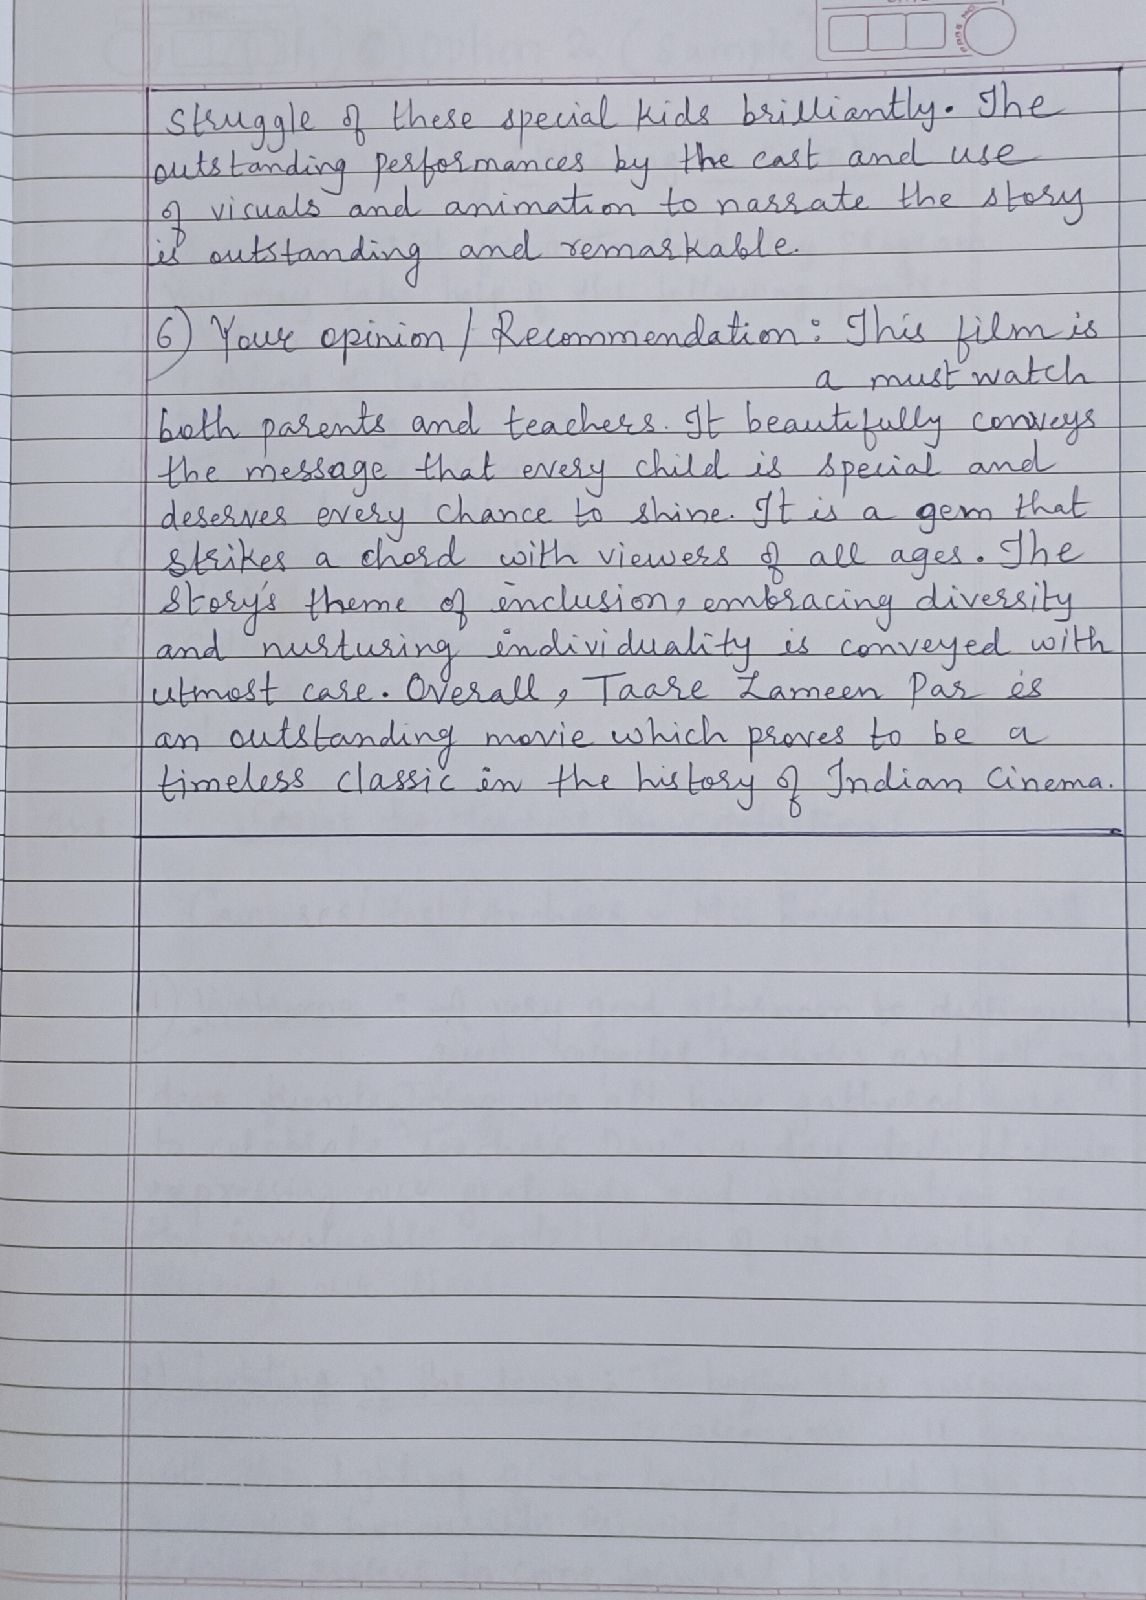 Struggle of these special kids brilliantly. The
outstanding performances by the cast and use
of visuals and animation to narrate the story
is outstanding and remarkable.
6) Your opinion / Recommendation: This film is
a must watch
both parents and teachers. It beautifully conveys
the message that every child is special and
deserves every chance to shine. It is a gem that
strikes a chord with viewers of all ages. The
Story's theme of inclusion, embracing diversity
and nurturing individuality is conveyed with
utmost care. Overall, Taare Zameen Par is
an outstanding movie which proves to be a
timeless classic in the history of Indian Cinema.